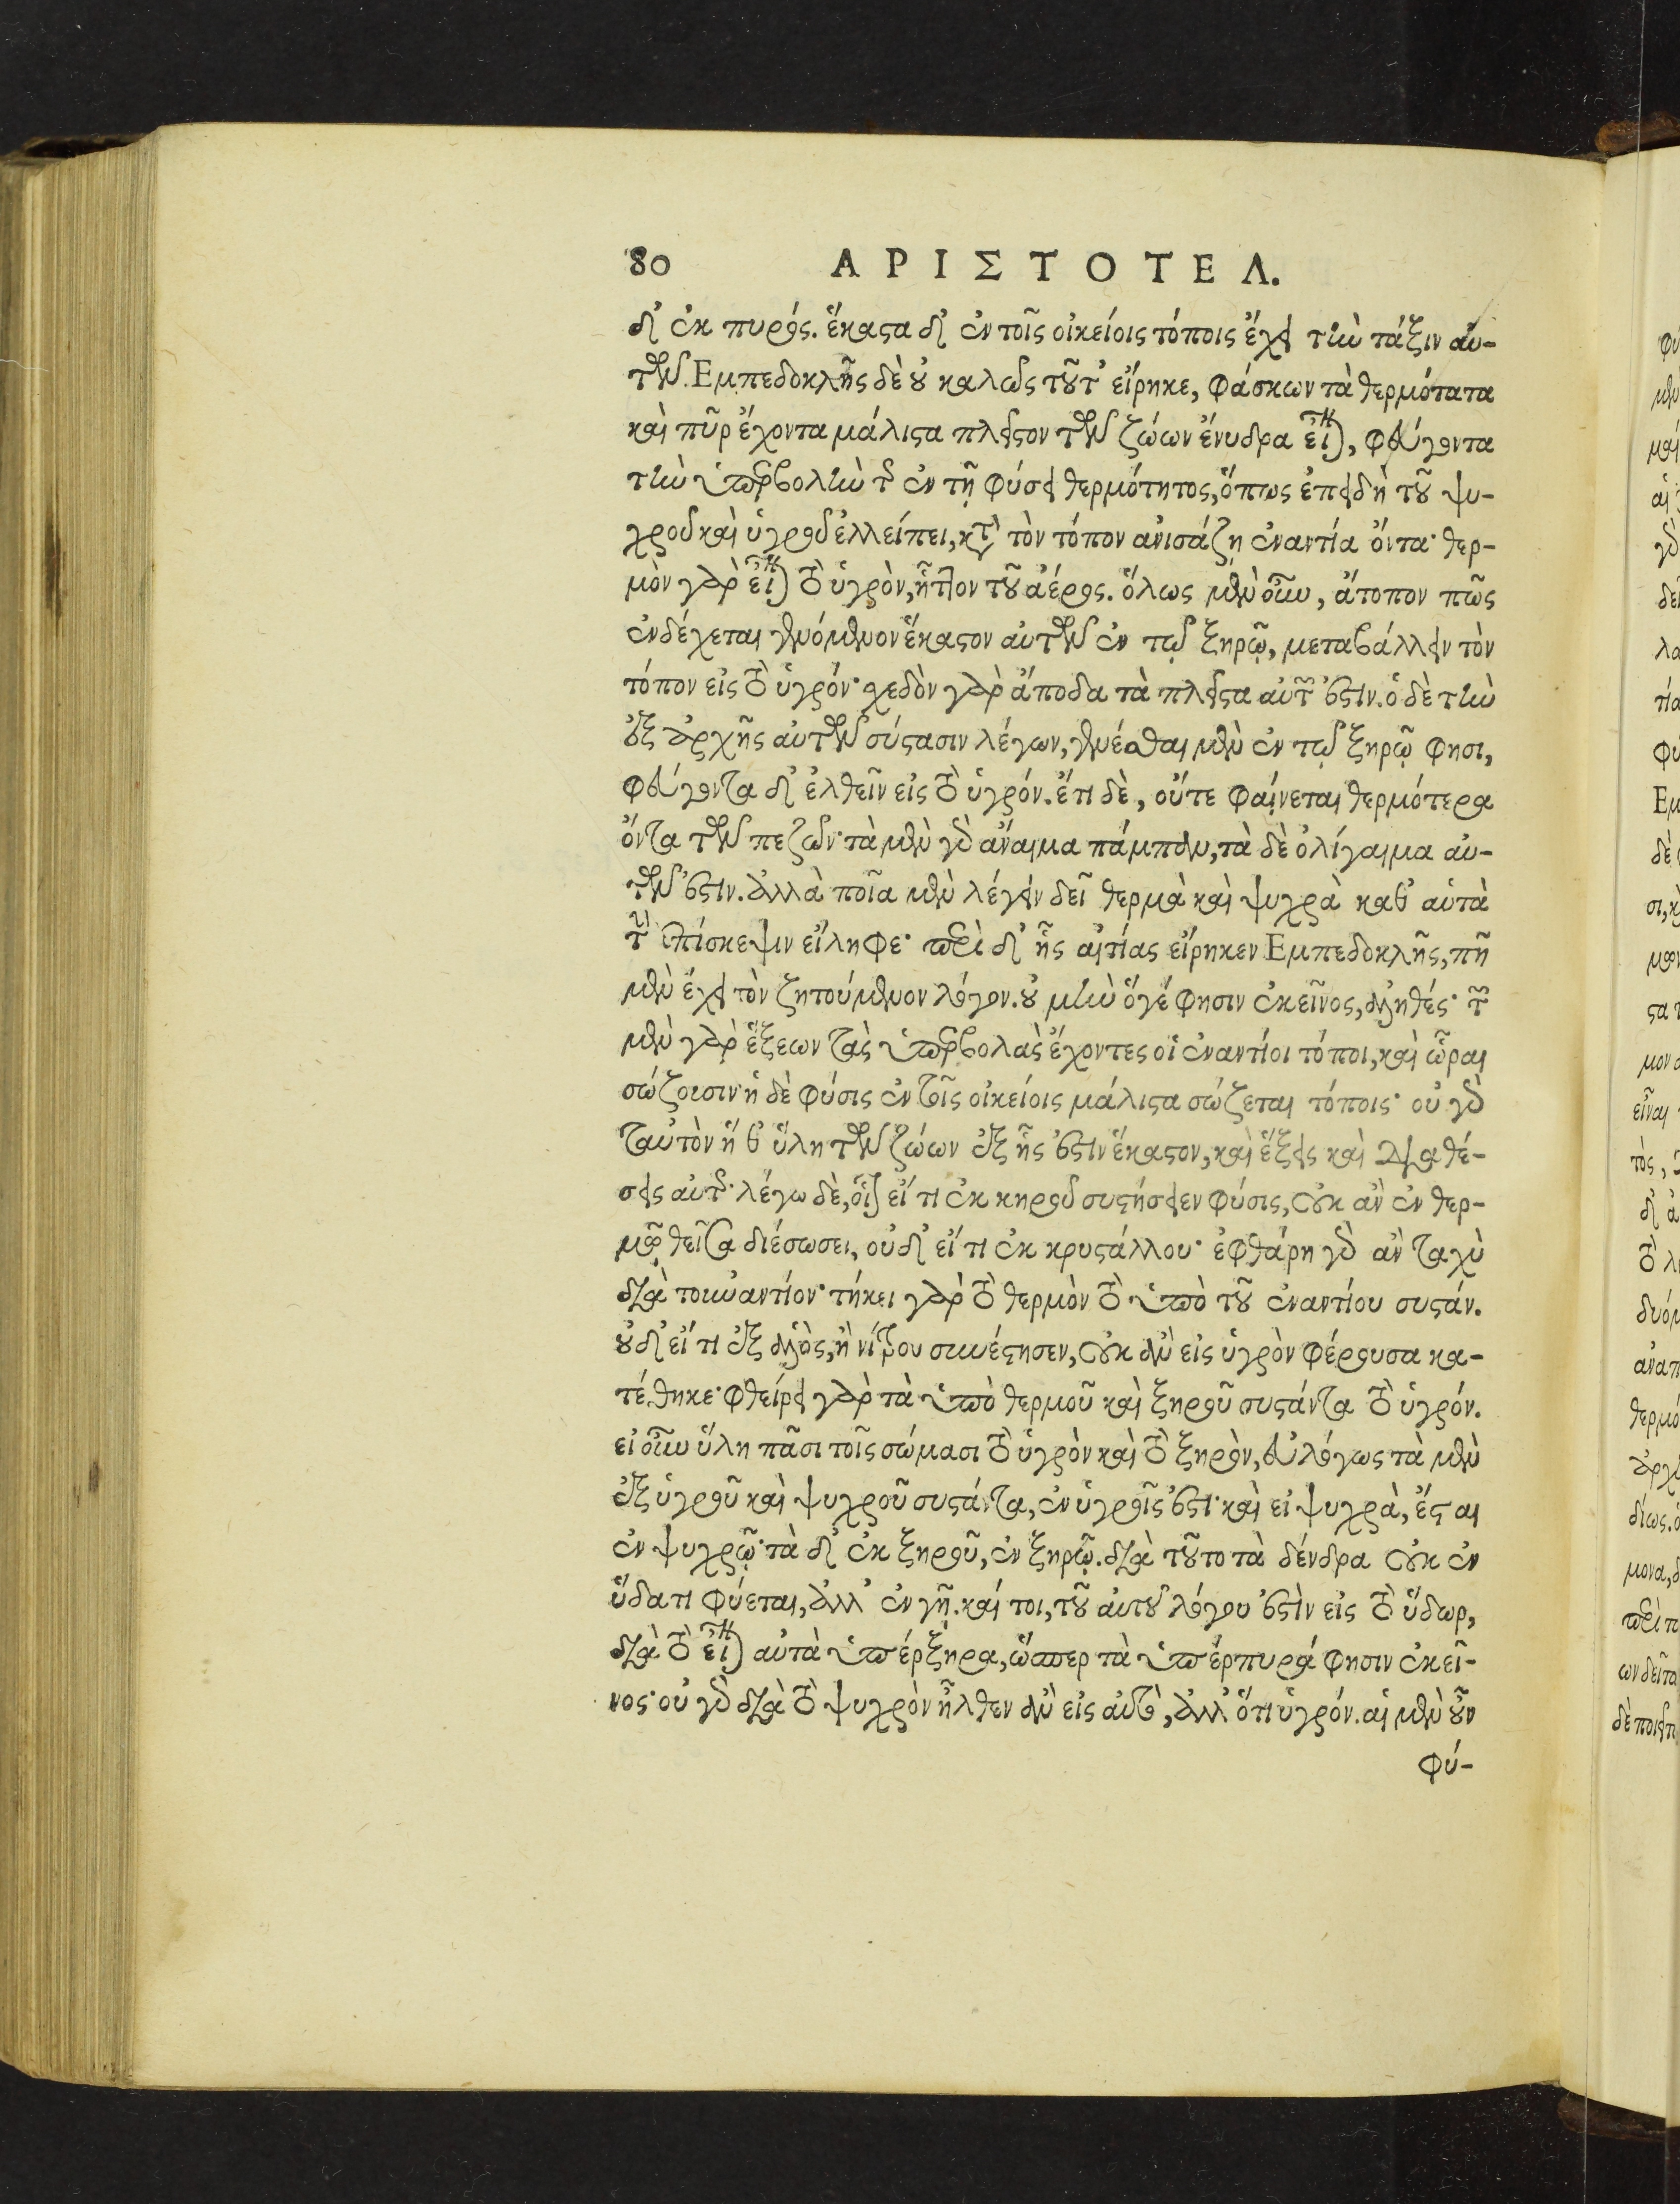 80 ΑΡΙΣΤΟΤΕΛ.
δ' ἐκ πυρός. ἕκαστα δ' ἐν τοῖς οἰκείοις τόποις ἔχει τὴν τάξιν αὐ-
τῶν. Εμπεδοκλῆς δὲ οὐ καλῶς τοῦτ' εἴρηκε, φάσκων τὰ θερμότατα
καὶ πῦρ ἔχοντα μάλιστα πλεῖστον τῶν ζώων ἔνυδρα εἶναι, φεύγοντα
τὴν ὑπερβολὴν τῆς ἐν τῇ φύσει θερμότητος, ὅπως ἐπειδὴ τοῦ ψυ-
χροῦ καὶ ὑγροῦ ἐλλείπει, κατὰ τὸν τόπον ἀνισάζῃ ἐναντία ὄντα· θερ-
μὸν γὰρ εἶναι τὸ ὑγρὸν, ἧττον τοῦ ἀέρος. ὅλως μὲν οὖν, ἄτοπον πῶς
ἐνδέχεται γενόμενον ἕκαστον αὐτῶν ἐν τῷ ξηρῷ, μεταβάλλειν τὸν
τόπον εἰς τὸ ὑγρόν· σχεδὸν γὰρ ἄποδα τὰ πλεῖστα αὐτῶν ἐστιν. ὁ δὲ τὴν
ἐξ ἀρχῆς αὐτῶν σύστασιν λέγων, γενέσθαι μὲν ἐν τῷ ξηρῷ φησι,
φεύγοντα δ' ἐλθεῖν εἰς τὸ ὑγρόν. ἔτι δὲ, οὔτε φαίνεται θερμότερα
ὄντα τῶν πεζῶν· τὰ μὲν γὰρ ἄναιμα πάμπαν, τὰ δὲ ὀλίγαιμα αὐ-
τῶν ἐστιν. ἀλλὰ ποῖα μὲν λέγειν δεῖ θερμὰ καὶ ψυχρὰ καθ' αὑτὰ
τὴν ἐπίσκεψιν εἴληφε· περὶ δ' ἧς αἰτίας εἴρηκεν Εμπεδοκλῆς, πῆ
μὲν ἔχει τὸν ζητούμενον λόγον. οὐ μὴν ὅγέ φησιν ἐκεῖνος, ἀληθές· τῶν
μὲν γὰρ ἕξεων τὰς ὑπερβολὰς ἔχοντες οἱ ἐναντίοι τόποι, καὶ ὧραι
σώζουσιν· ἡ δὲ φύσις ἐν τοῖς οἰκείοις μάλιστα σώζεται τόποις· οὐ γὰρ
ταὐτὸν ἥ θ' ὕλη τῶν ζώων ἐξ ἧς ἐστιν ἕκαστον, καὶ ἕξεις καὶ διαθέ-
σεις αὐτῆς· λέγω δὲ, οἷον εἴ τι ἐκ κηροῦ συστήσειεν φύσις, οὐκ ἂν ἐν θερ-
μῷ θεῖσα διέσωσει, οὐδ' εἴ τι ἐκ κρυστάλλου· ἐφθάρη γὰρ ἂν ταχὺ
διὰ τοὐναντίον· τήκει γὰρ τὸ θερμὸν τὸ ὑπὸ τοῦ ἐναντίου συστάν.
οὐδ' εἴ τι ἐξ ἁλὸς, ἢ νίτρου συνέστησεν, οὐκ ἂν εἰς ὑγρὸν φέρουσα κα-
τέθηκε· φθείρει γὰρ τὰ ὑπὸ θερμοῦ καὶ ξηροῦ συστάντα τὸ ὑγρόν.
εἰ οὖν ὕλη πᾶσι τοῖς σώμασι τὸ ὑγρὸν καὶ τὸ ξηρὸν, εὐλόγως τὰ μὲν
ἐξ ὑγροῦ καὶ ψυχροῦ συστάντα, ἐν ὑγροῖς ἐστι· καὶ εἰ ψυχρὰ, ἔσται
ἐν ψυχρῷ· τὰ δ' ἐκ ξηροῦ, ἐν ξηρῷ. διὰ τοῦτο τὰ δένδρα οὐκ ἐν
ὕδατι φύεται, ἀλλ' ἐν γῇ. καί τοι, τοῦ αὐτοῦ λόγου ἐστὶν εἰς τὸ ὕδωρ,
διὰ τὸ εἶναι αὐτὰ ὑπέρξηρα, ὥσπερ τὰ ὑπέρπυρά φησιν ἐκεῖ-
νος· οὐ γὰρ διὰ τὸ ψυχρὸν ἦλθεν ἂν εἰς αὐτὸ, ἀλλ' ὅτι ὑγρόν. αἱ μὲν οὖν
φύ-